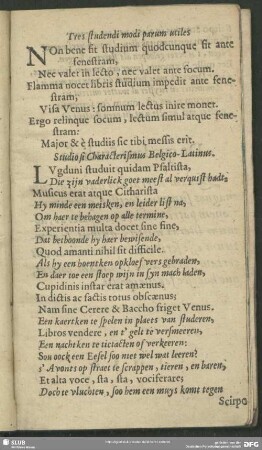 Tres studendi modi parum utiles
NOn bene fit studium quodcunque sit ante
fenestram,
Nec valet in lecto, nec valet ante focum.
Flamma nocet libris studium impedit ante fene-
stram;
Visa Venus: somnum lectus inire monet.
Ergo relinque focum, lectum simul atque fene-
stram:
Major & è studiis sic tibi, messis erit.
Studiosi Characterismus Belgico-Latinus.
LVgduni studuit quidam Psaltista,
Die zijn vaderlick goet meest al verquist hadt,
Musicus erat atque Citharista
Hy minde een meisken, en leider list na,
Om haer te behagen op alle termine,
Experientia multa docet sine fine,
Dat bethoonde hy haer bewisende,
Quod amanti nihil sit difficile.
Als hy een hoentken opkloef vers gebraden,
En daer toe een stoop wijn in syn mach laden,
Cupidinis instar erat amænus.
In dictis ac factis totus obscænus;
Nam sine Cerere & Baccho friget Venus.
Een kaertken te spelen in plaets van studeren,
Libros vendere, en t' gelt te versmeeren,
Een nachtken te tictacten of verkeeren:
Sou oock een Eesel soo niet wel wat leeren?
s' Avonts op straet te scrappen, tieren, en baren,
Et alta voce, sta, sta, vociferare;
Doch te vluchten, soo hem een muys komt tegen
Scirpo
SLUB